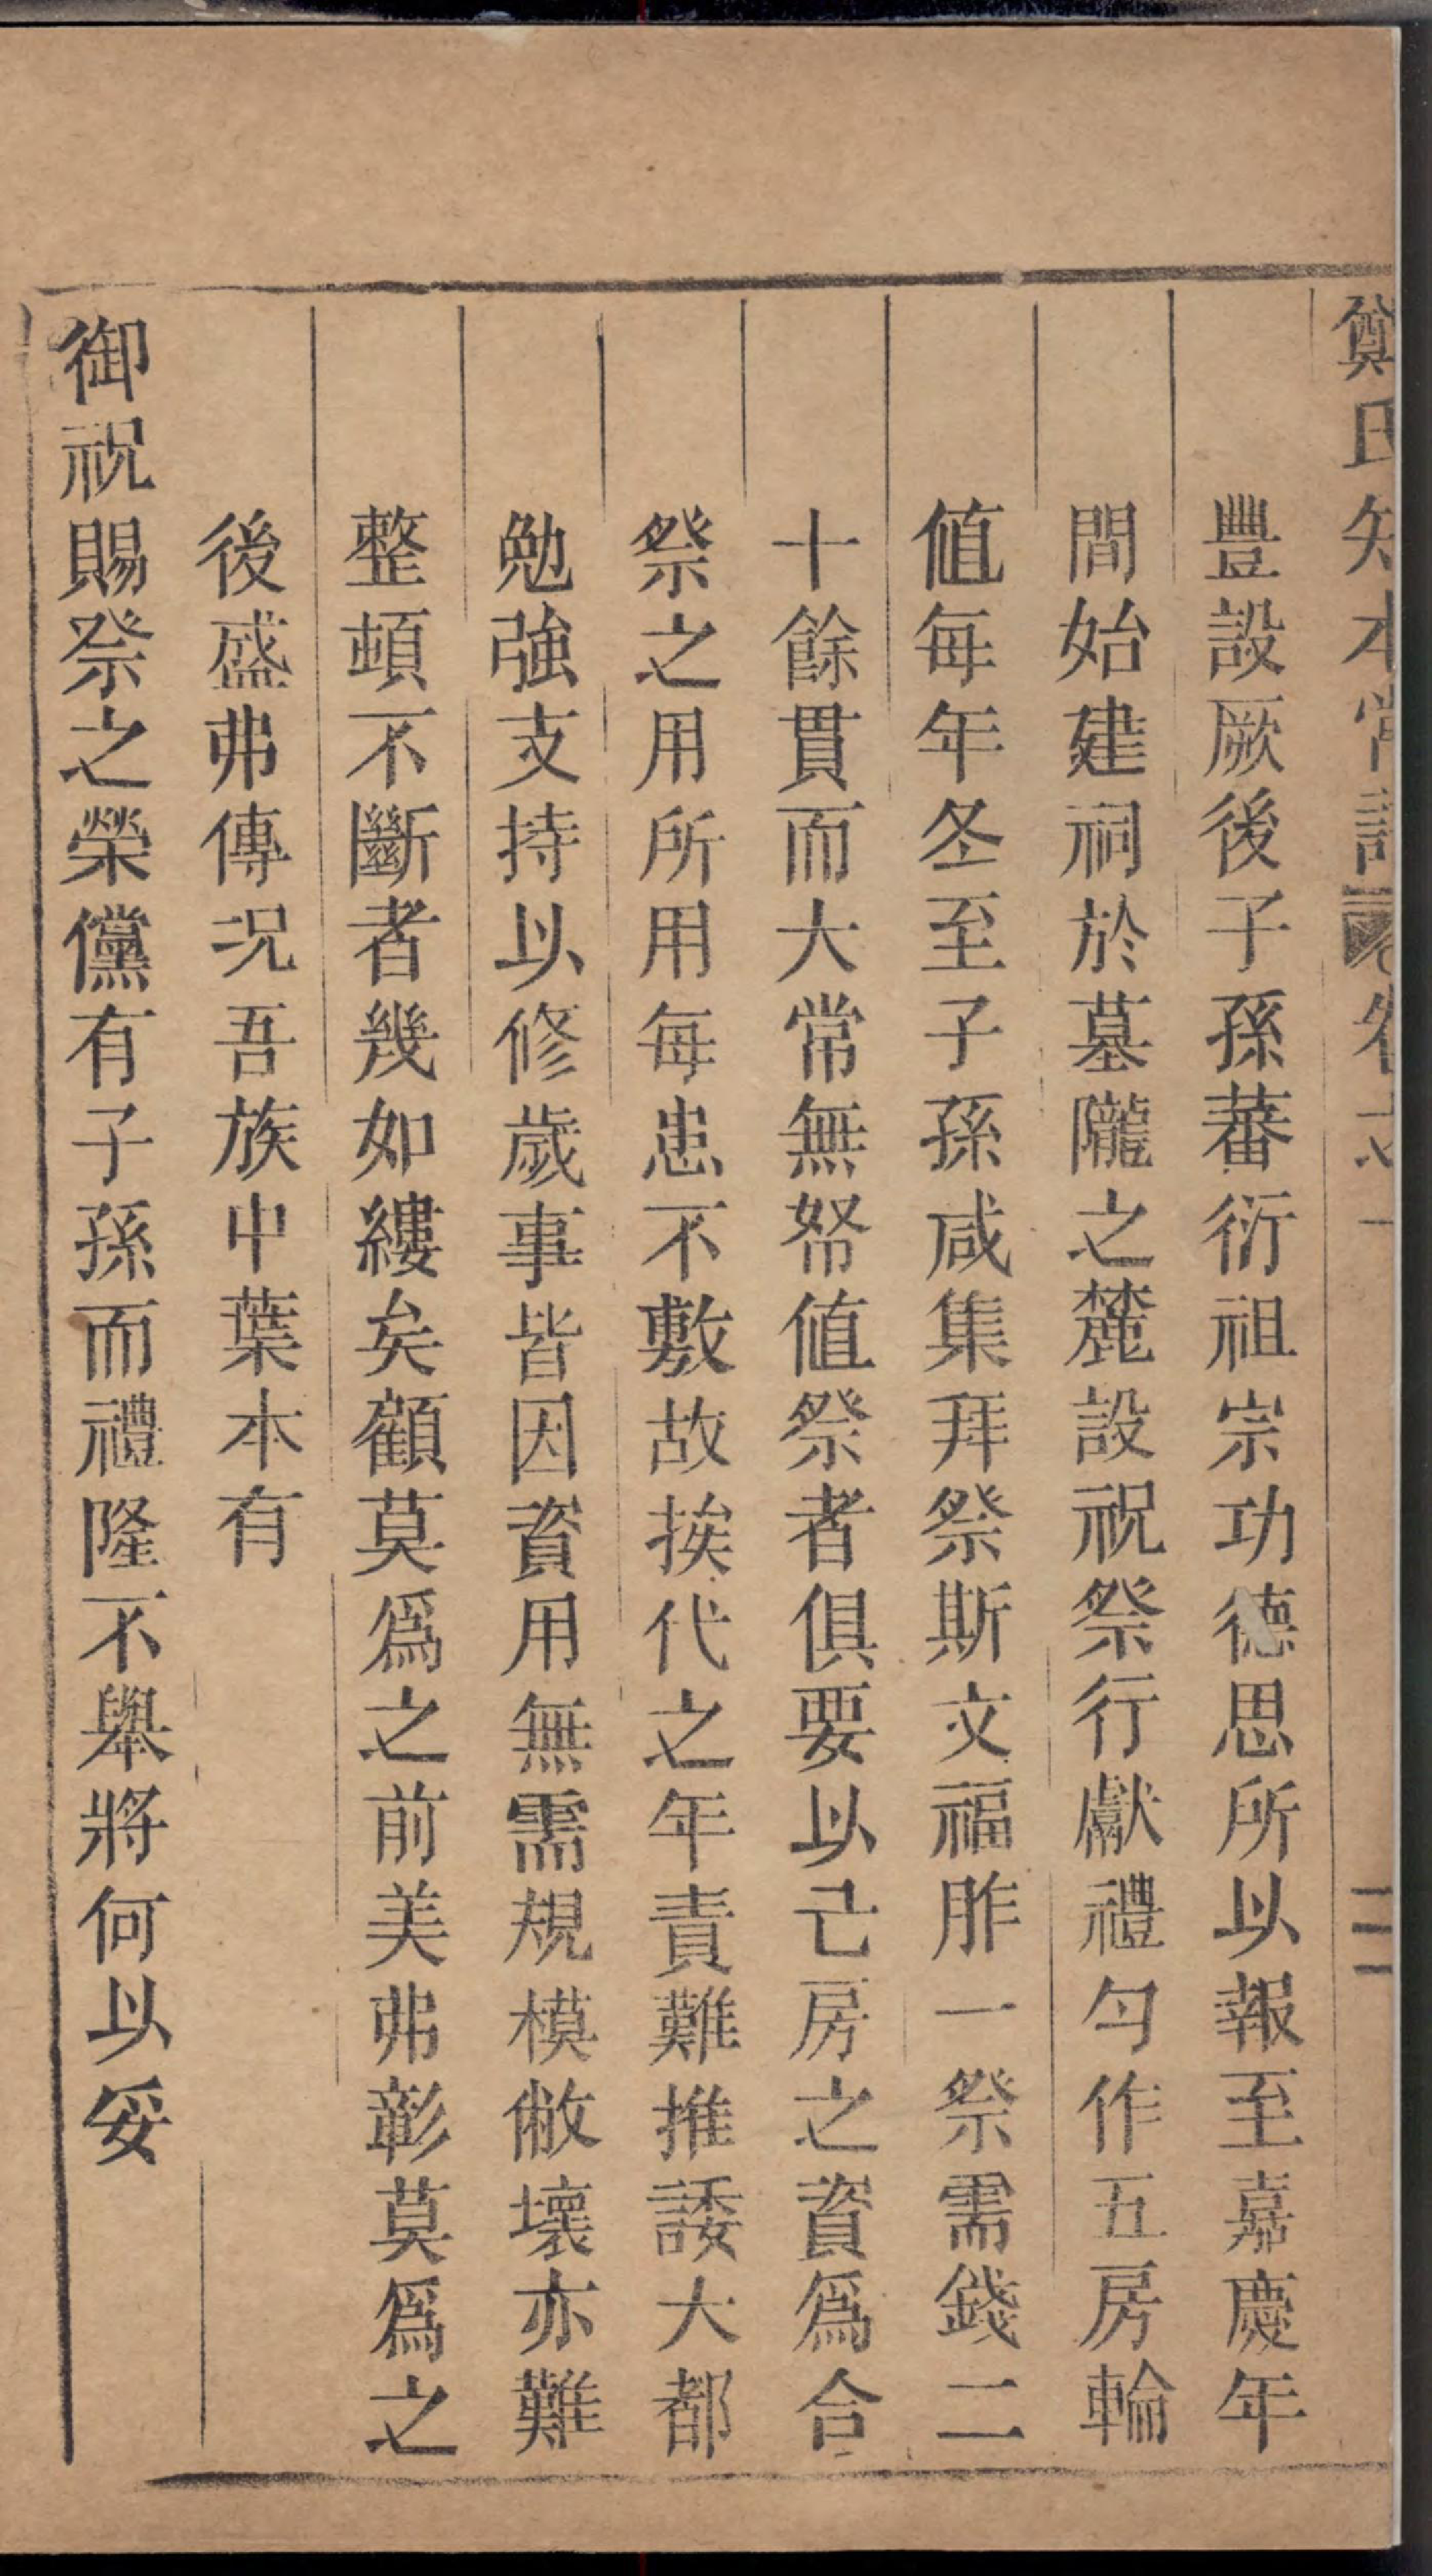 鄭氏知本常記 卷之一 三
豐設厥後子孫蕃衍祖宗功德思所以報至嘉慶年
間始建祠於墓隴之麓設祝祭行獻禮勻作五房輪
值每年冬至子孫咸集拜祭斯文福胙一祭需錢二
十餘貫而大常無帑值祭者俱要以己房之資爲合
祭之用所用每患不敷故挨代之年責難推諉大都
勉強支持以修歲事皆因資用無需規模敝壞亦難
整頓不斷者幾如縷矣顧莫爲之前美弗彰莫爲之
後盛弗傳況吾族中葉本有
御祝賜祭之榮儻有子孫而禮隆不舉將何以妥